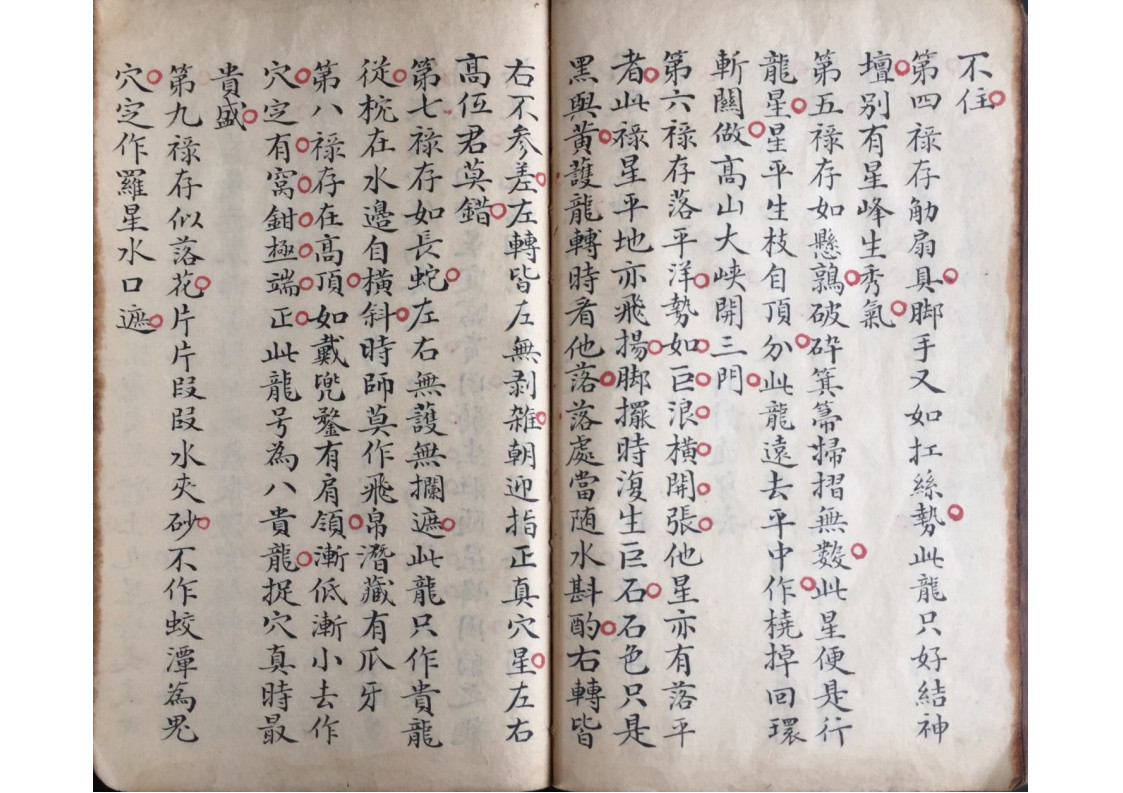 不住
第四禄存觔扇具脚手又如扛絲勢此龍只好結神
壇别有星峰生秀氣
第五禄存如懸鶉破碎箕箒掃摺無數此星便是行
龍星星平生枝自頂分此龍遠去平中作橈掉回環
斬關做高山大峽開三門
第六禄存落平洋勢如巨浪橫開張他星亦有落平
者此禄星平地亦飛揚脚擺時復生巨石石色只是
黑與黄護龍轉時看他落落處當随水斟酌右轉皆
右不参差左轉皆左無剥雜朝迎指正真穴星左右
高低君莫錯
第七禄存如長蛇左右無護無攔遮此龍只作貴龍
從枕在水邊自橫斜時師莫作飛帛潛藏有爪牙
第八禄存在高頂如戴兠鍪有肩領漸低漸小去作
穴定有窩鉗極端正此龍号為八貴龍捉穴真時最
貴盛
第九禄存似落花片片段段水夾砂不作蛟潭為鬼
穴定作羅星水口遮